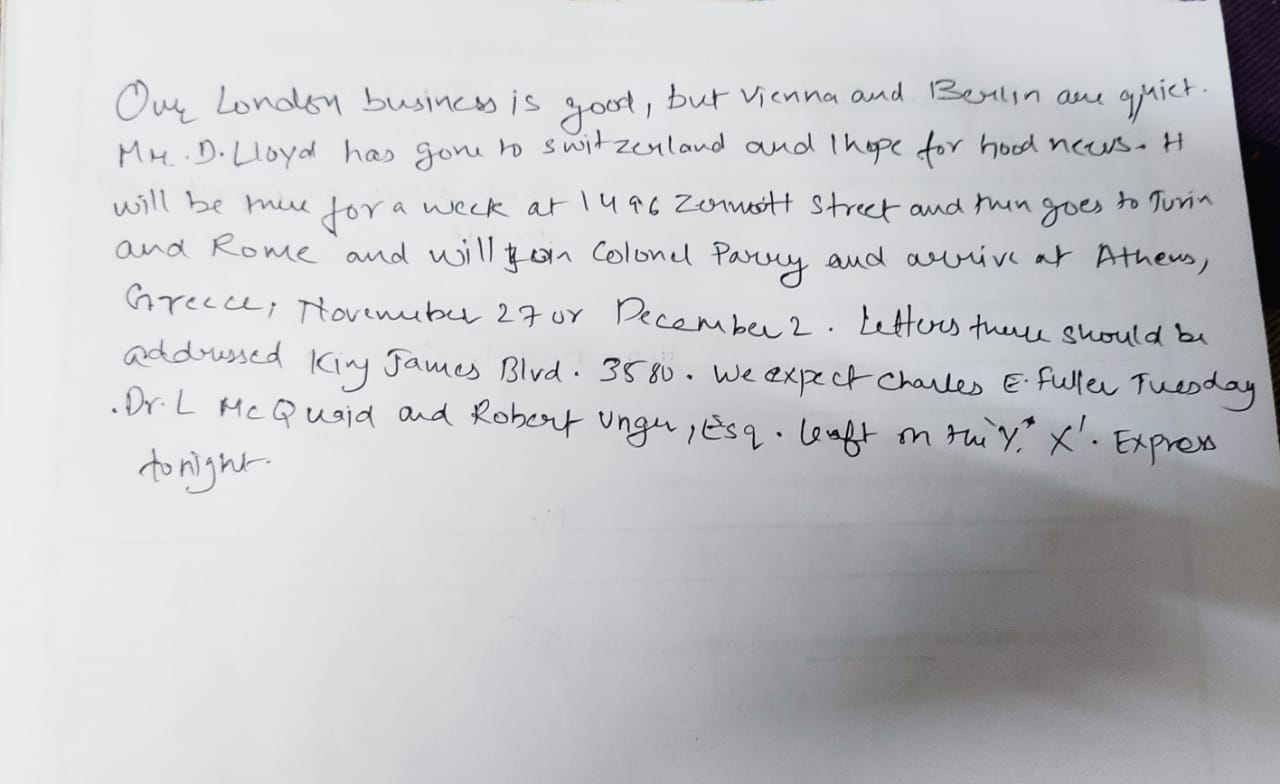 Our London business is good, but Vienna and Berlin are quiet.
Mr. D. Lloyd has gone to switzerland and I hope for hood news. H
will be there for a week at 1496 Zermott Street and then goes to Turin
and Rome and will join Colonel Parry and arrive at Athens,
Greece, November 27 or December 2. Letters there should be
addressed King James Blvd. 3580. We expect Charles E. Fuller Tuesday
. Dr. L McQuaid and Robert Unger, Esq. left on the 'Y. X'. Express
tonight.